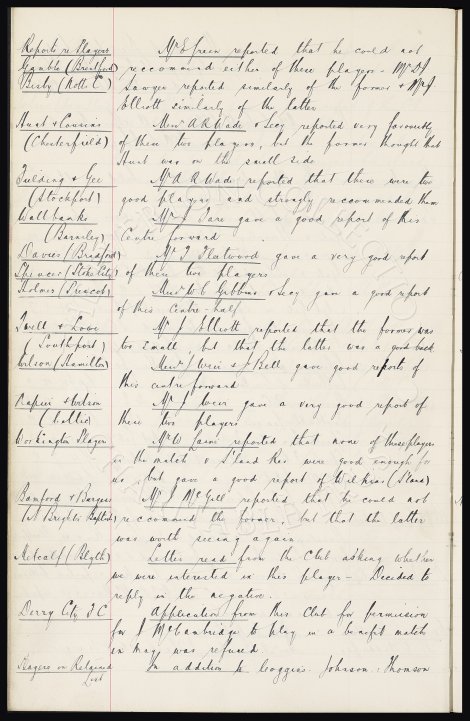 Reports re Players Mr Efrein reported that he could not
Gamble (Brentford) reccommend either of these players - Mr D J
Bisby (Notts C) Sawyer reported similarly of the former & Mr J
Elliott similarly of the latter
Hunt & Cousins Messrs A R Wade & Secy reported very favourably
(Chesterfield) of these two players, but the former thought that
Hunt was on the small side
Fielding & Gee Mr A R Wade reported that there were two
(Stockport) good players and strongly reccommended them
Wallbanks Mr J Tare gave a good report of this
(Barnsley) Centre forward
Davies (Bradford) Mr T Fleetwood gave a very good report
Spencer (Stoke City) of these two players
Holmes (Prescot) Messrs W C Gibbins & Secy gave a good report
of this Centre-half
Twell & Lowe Mr J Elliott reported that the former was
(Southport) too small but that the latter was a good back
Wilson (Hamilton) Messrs J Weir & J Bell gave good reports of
this centre forward
Napier & Wilson Mr J Weir gave a very good report of
(Celtic) these two players
Workington Players Mr W reported that none of these players
in the match v S'land Res were good enough for
us, but gave a good report of Wilkins (S'land)
Bamford & Burgess Mr J McGill reported that he could not
(St Brights Baptists) reccommend the former, but that the latter
was worth seeing again.
Metcalf (Blyth) Letter read from the Club asking whether
we were interested in this player - Decided to
reply in the negative.
Derry City F C Application from this Club for permission
for J McCambridge to play in a benefit match
in May was refused.
Players on Retained In addition to Coggins. Johnson. Thomson
List